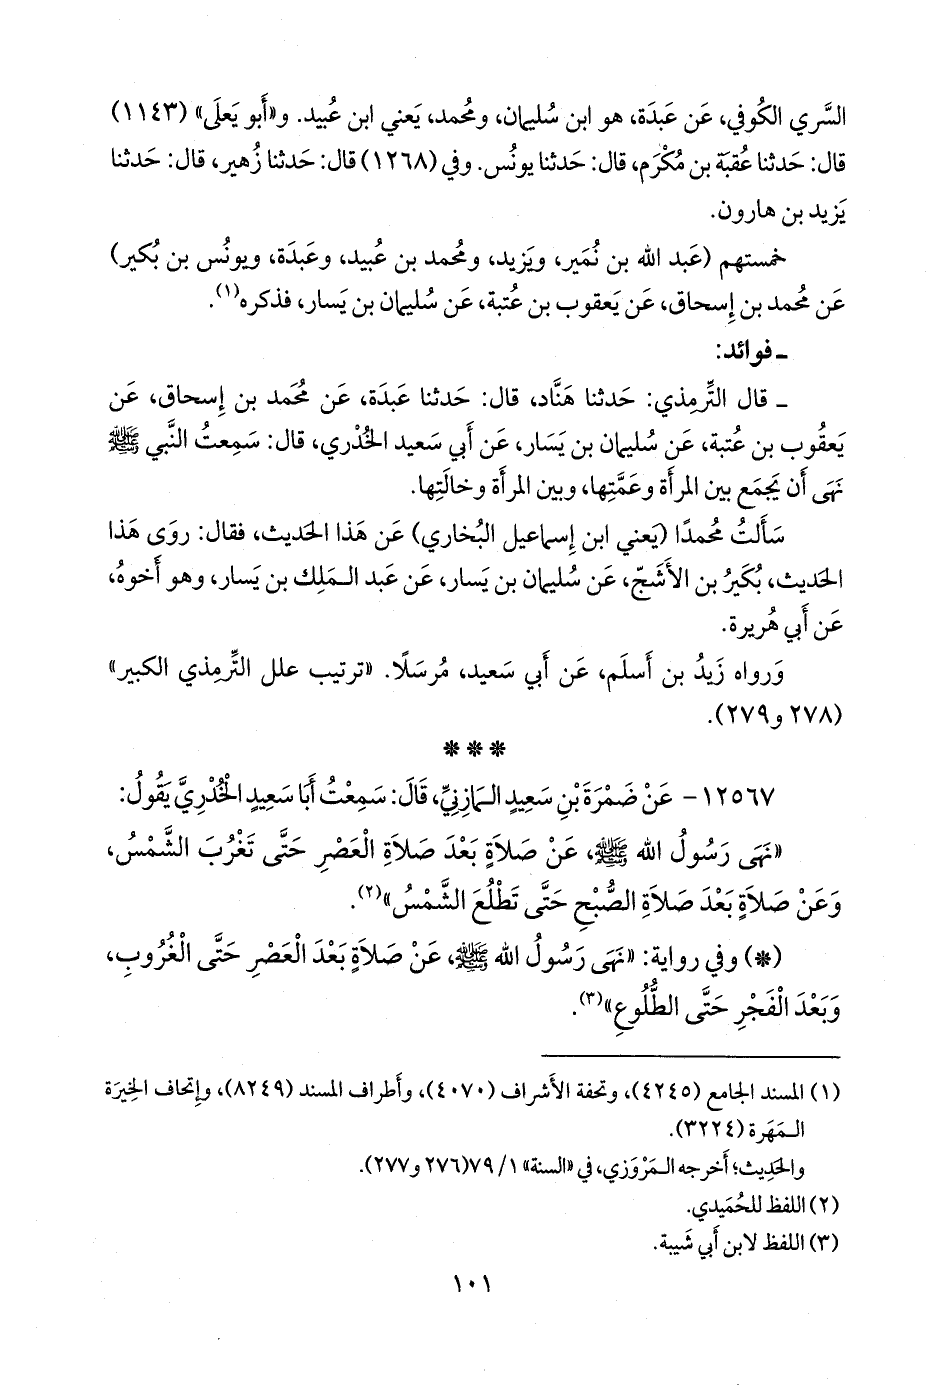 السَّري الكُوفي، عَن عَبدَة، هو ابن سُليمان، ومُحمد، يَعني ابن عُبيد. و«أَبو يَعلَى» (١١٤٣)
قال: حَدثنا عُقبَة بن مُكْرَم، قال: حَدثنا يونُس. وفي (١٢٦٨) قال: حَدثنا زُهير، قال: حَدثنا
يَزيد بن هارون.
خمستهم (عَبد الله بن نُمَير، ويَزيد، ومُحمد بن عُبيد، وعَبدَة، ويونُس بن بُكير)
عَن مُحمد بن إِسحاق، عَن يَعقوب بن عُتبة، عَن سُليمان بن يَسار، فذكره(١).
ـ فوائد:
ـ قال التِّرمِذي: حَدثنا هَنَّاد، قال: حَدثنا عَبدَة، عَن مُحَمد بن إِسحاق، عَن
يَعقُوب بن عُتبة، عَن سُليمان بن يَسَار، عَن أَبي سَعيد الخُدْري، قال: سَمِعتُ النَّبي ﷺ
نَهَى أَن يَجمَع بين المرأَة وعَمَّتِها، وبين المرأَة وخالَتِها.
سَأَلتُ مُحمدًا (يَعني ابن إِسماعيل البُخاري) عَن هَذا الحَديث، فقال: روَى هَذا
الحَديث، بُكَيرُ بن الأَشَجّ، عَن سُليمان بن يَسار، عَن عَبد الـمَلِك بن يَسار، وهو أَخوهُ،
عَن أَبي هُريرة.
وَرواه زَيدُ بن أَسلَم، عَن أَبي سَعيد، مُرسَلًا. «ترتيب علل التِّرمِذي الكبير»
(٢٧٨ و٢٧٩).
* * *
١٢٥٦٧- عَنْ ضَمْرَةَ بْنِ سَعِيدٍ الـمَازِنِيِّ، قَالَ: سَمِعْتُ أَبَا سَعِيدٍ الْخُدْرِيَّ يَقُولُ:
«نَهَى رَسُولُ الله ﷺ، عَنْ صَلاَةٍ بَعْدَ صَلاَةِ الْعَصْرِ حَتَّى تَغْرُبَ الشَّمْسُ،
وَعَنْ صَلاَةٍ بَعْدَ صَلاَةِ الصُّبْحِ حَتَّى تَطْلُعَ الشَّمْسُ»(٢).
(*) وفي رواية: «نَهَى رَسُولُ الله ﷺ، عَنْ صَلاَةٍ بَعْدَ الْعَصْرِ حَتَّى الْغُرُوبِ،
وَبَعْدَ الْفَجْرِ حَتَّى الطُّلُوعِ»(٣).
(١) المسند الجامع (٤٢٤٥)، وتحفة الأَشراف (٤٠٧٠)، وأَطراف المسند (٨٢٤٩)، وإتحاف الخِيرَة
الـمَهَرة (٣٢٢٤).
والحَدِيث؛ أَخرجه الـمَرْوَزي، في «السنة» ١/ ٧٩(٢٧٦ و٢٧٧).
(٢) اللفظ للحُمَيدي.
(٣) اللفظ لابن أَبي شَيبة.
١٠١